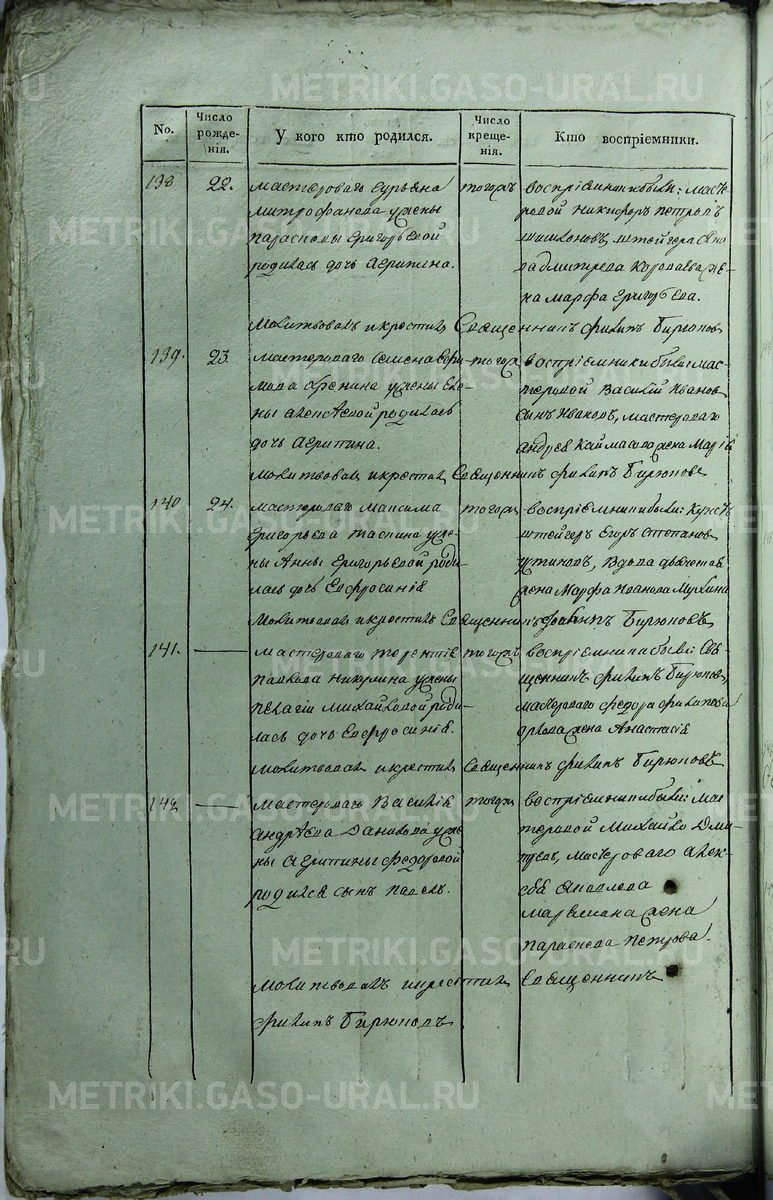 No.
Число рожде-
нія.
У кого кто родился.
Число креще-
нія.
Кто воспріемники.
138
22.
мастероваго Гурьяна
Митрофанова у жены
Параскевы Григорьевой
родилась дочь Агрипина.
тогожъ
воспріемники были: масте
ровой Никифоръ Петровъ
Шишконовъ, штейгера
Дмитрева жe-
на Марфа Григорьева.
Молитвовалъ и крестилъ Священникъ Филипъ Бирюковъ
139.
23.
мастероваго Семена
у жены Еле-
ны Алексѣевой родилась
дочь Агрипина.
тогожъ
воспріемники были мас-
теровой Василій Иванов
сынъ Ивановъ, мастероваго
Андрея жена Марія
Молитвовалъ и крестилъ Священникъ Филипъ Бирюковъ
140
24.
мастероваго Максима
Григорьева у же-
ны Анны Григорьевой роди-
лась дочь Евфросинія
тогожъ
воспріемники были: Кунст
штейгеръ Егоръ Степанов
Устиновъ, вдова
жена Марфа Иванова Мухина
Молитвовалъ и крестилъ Священникъ Филипъ Бирюковъ
141.
мастероваго Терентія
Павлова Никулина у жены
Пелагіи Михайловой роди-
лась дочь Евфросинія.
тогожъ
воспріемники были Свя-
щенникъ Филипъ Бирюков,
мастероваго Федора Филипова
жена Анастасія
Молитвовалъ и крестилъ Священникъ Филипъ Бирюковъ
142
мастероваго Василія
Андрѣева Данилова у же-
ны Агрипины Федоровой
родился сынъ Павелъ.
тогожъ
воспріемники были: мас
теровой Михайло Дми-
тревъ, мастероваго Алек-
сѣя Яковлева
жена
Параскева Петрова.
Молитвовалъ и крестилъ Священникъ
Филипъ Бирюковъ
METRIKI.GASO-URAL.RU